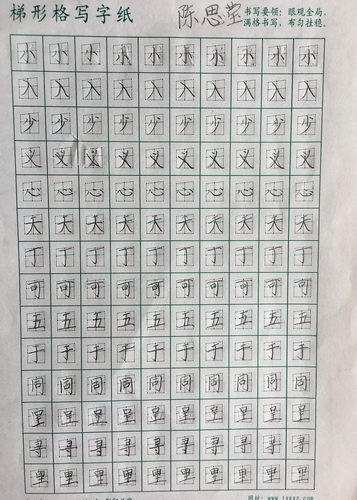 梯形格写字纸 陈思莹 书写要领：眼观全局，
满格书写，布匀挂稳。
小 小 小 小 小 小 小 小 小
入 入 入 入 入 入 入 入 入
少 少 少 少 少 少 少 少 少
义 义 义 义 义 义 义 义 义
心 心 心 心 心 心 心 心 心
天 天 天 天 天 天 天 天 天
丁 丁 丁 丁 丁 丁 丁 丁 丁
可 可 可 可 可 可 可 可 可
五 五 五 五 五 五 五 五 五
于 于 于 于 于 于 于 于 于
同 同 同 同 同 同 同 同 同
呈 呈 呈 呈 呈 呈 呈 呈 呈
寻 寻 寻 寻 寻 寻 寻 寻 寻
里 里 里 里 里 里 里 里 里